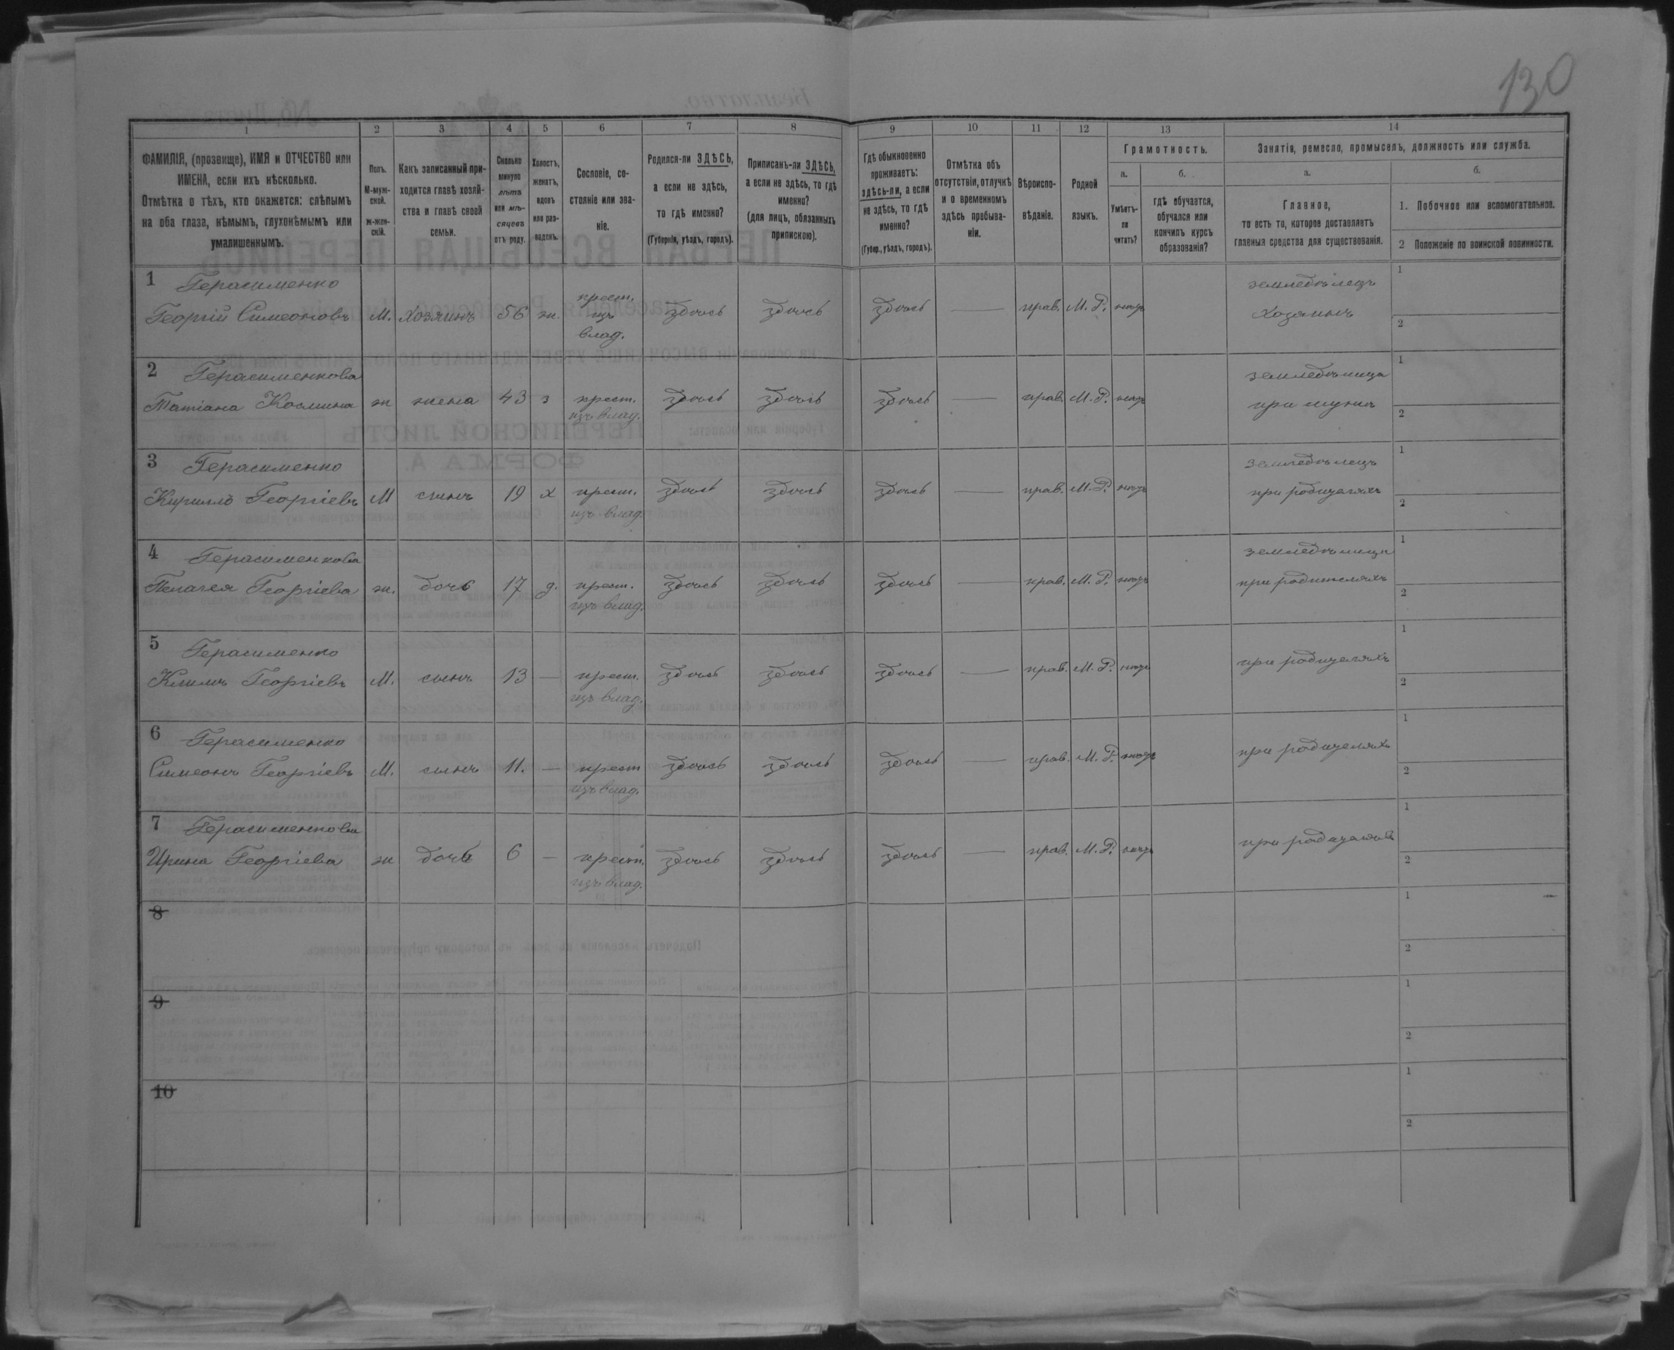 130
1 2 3 4 5 6 7 8 9 10 11 12 13 14
ФАМИЛІЯ, (прозвище), ИМЯ и ОТЧЕСТВО или
ИМЕНА, если ихъ нѣсколько.
Отмѣтка о тѣхъ, кто окажется: слѣпымъ
на оба глаза, нѣмымъ, глухонѣмымъ или
умалишеннымъ.
Полъ.
М-муж-
ской.
ж-жен-
скій.
Какъ записанный при-
ходится главѣ хозяй-
ства и главѣ своей
семьи.
Сколько
минуло
лѣтъ
или мѣ-
сяцевъ
отъ роду.
Холостъ,
женатъ,
вдовъ
или раз-
веденъ.
Сословіе, со-
стояніе или зва-
ніе.
Родился-ли ЗДѢСЬ,
а если не здѣсь,
то гдѣ именно?
(Губернія, уѣздъ, городъ).
Приписанъ-ли ЗДѢСЬ,
а если не здѣсь, то гдѣ
именно?
(для лицъ, обязанныхъ
припискою).
Гдѣ обыкновенно
проживаетъ:
здѣсь-ли, а если
не здѣсь, то гдѣ
именно?
(Губер., уѣздъ, городъ).
Отмѣтка объ
отсутствіи, отлучкѣ
и о временномъ
здѣсь пребыва-
ніи.
Вѣроиспо-
вѣданіе.
Родной
языкъ.
Грамотность.
а.
Умѣетъ-
ли
читать?
б.
гдѣ обучается,
обучался или
кончилъ курсъ
образованія?
Занятіе, ремесло, промыселъ, должность или служба.
а.
Главное,
то есть то, которое доставляетъ
главныя средства для существованія.
б.
1. Побочное или вспомогательное.
2 Положеніе по воинской повинности.
1 Герасименко
Георгій Симеоновъ М. хозяинъ 56 ж. крест. изъ влад. здѣсь здѣсь здѣсь — прав. М. Р. нѣтъ земледѣлецъ хозяинъ 1 2
2 Герасименкова
Татіана Козмина ж жена 43 з крест. изъ влад. здѣсь здѣсь здѣсь — прав. М. Р. нѣтъ земледѣлица при мужѣ 1 2
3 Герасименко
Кирилло Георгіевъ М сынъ 19 х крест. изъ влад. здѣсь здѣсь здѣсь — прав. М. Р. нѣтъ земледѣлецъ при родителяхъ 1 2
4 Герасименкова
Пелагея Георгіева ж. дочь 17 д. крест. изъ влад. здѣсь здѣсь здѣсь — прав. М. Р. нѣтъ земледѣлица при родителяхъ 1 2
5 Герасименко
Климъ Георгіевъ М. сынъ 13 — крест. изъ влад. здѣсь здѣсь здѣсь — прав. М. Р. нѣтъ при родителяхъ 1 2
6 Герасименко
Симеонъ Георгіевъ М. сынъ 11. — крест изъ влад. здѣсь здѣсь здѣсь — прав. М. Р. нѣтъ при родителяхъ 1 2
7 Герасименкова
Ирина Георгіева ж дочь 6 — крест. изъ влад. здѣсь здѣсь здѣсь — прав. М. Р. нѣтъ при родителяхъ 1 2
8 1 2
9 1 2
10 1 2